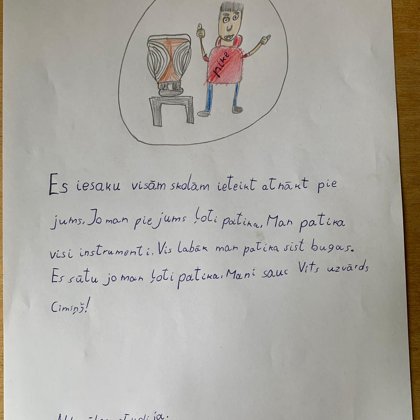 nike
Es iesaku visām skolām ieteikt atnākt pie
jums. Jo man pie jums ļoti patika. Man patika
visi instrumenti. Vis labāk man patika sist bugas.
Es sūtu jo man ļoti patika. Mani sauc Vits uzvārds
Cimiņš!